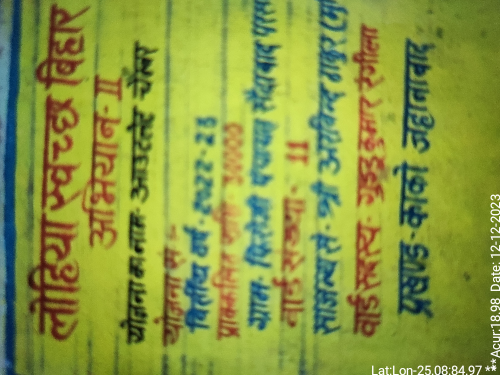 लोहिया स्वच्छ बिहार
अभियान-II
योजना का नाम- आउटलेट चेम्बर
योजना सं :-
वित्तीय वर्ष -2022-23
प्राक्कलित राशि- 30000
ग्राम- पंचायत सैदाबाद
वार्ड संख्या- 11
सौजन्य से - श्री अरविन्द ठाकुर
वार्ड सदस्य- गुड्डू कुमार रंगीला
प्रखण्ड- काको जहानाबाद
Lat:Lon-25.08:84.97 **Acur:18.98 Date: 12-12-2023